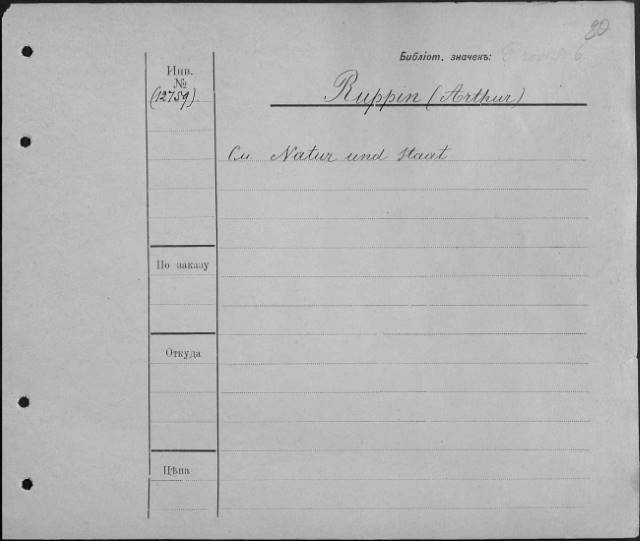 80
Библіот. значекъ:
Инв.
№
(12759).
Ruppin (Arthur)
См. Natur und Staat
По заказу
Откуда
Цѣна